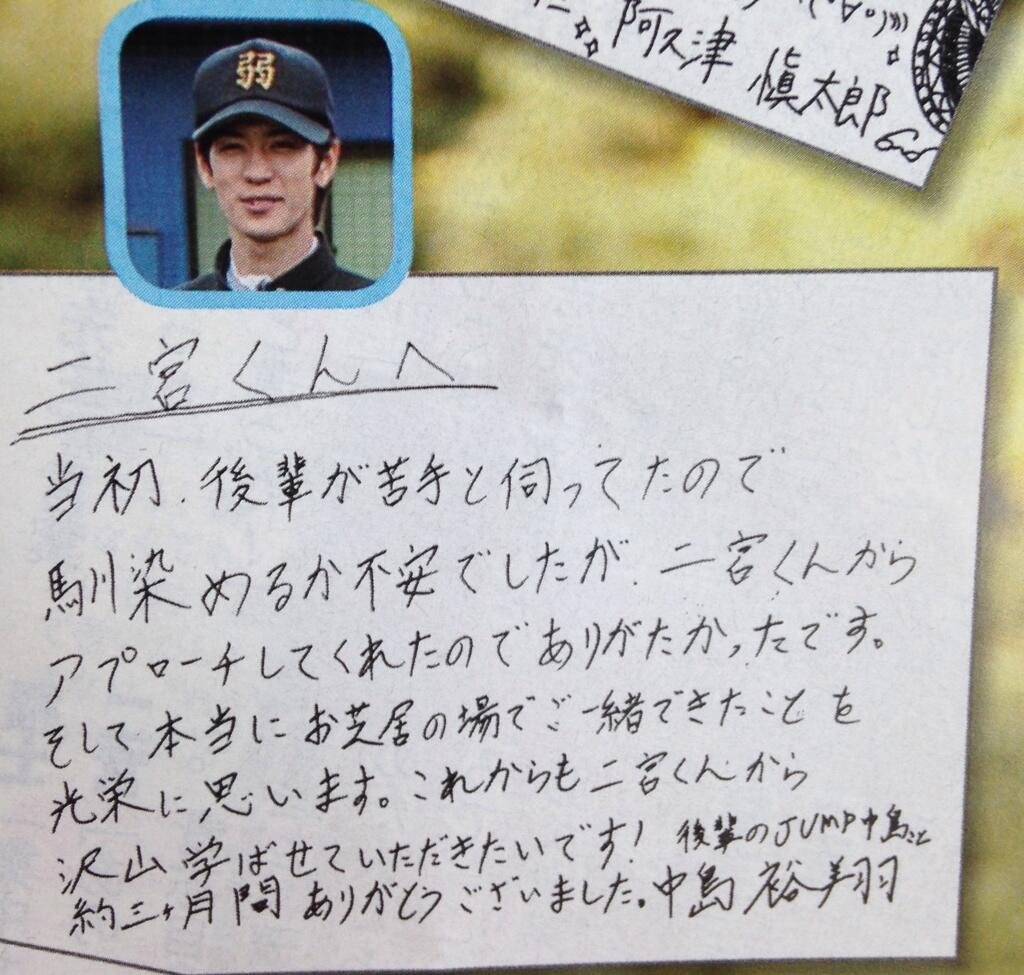 阿久津
慎太郎
弱
二宮くんへ
当初、後輩が苦手と伺ってたので
馴染めるか不安でしたが、二宮くんから
アプローチしてくれたのでありがたかったです。
そして本当にお芝居の場でご一緒できたことを
光栄に思います。これからも二宮くんから
沢山学ばせていただきたいです!
約三ヶ月間ありがとうございました。
後輩のJUMP中島こと
中島裕翔